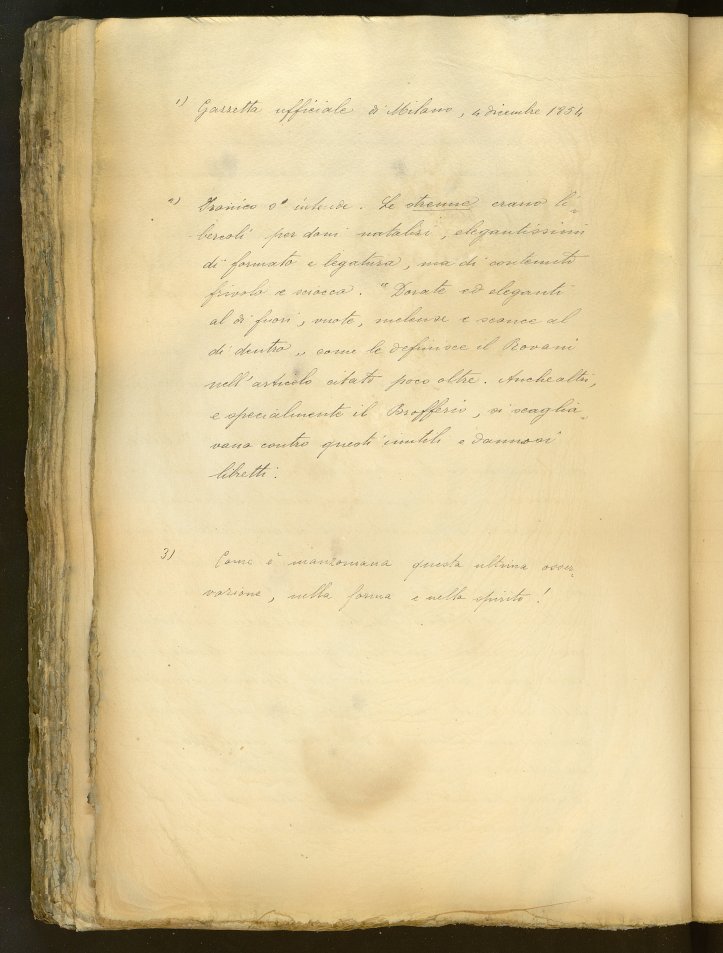 1) Gazzetta ufficiale di Milano, 4 dicembre 1854
2) Ironico s'intende. Le strenne erano li=
bercoli per doni natalizi, elegantissimi
di formato e legatura, ma di contenuto
frivolo e sciocco. "Dorate ed eleganti
al di fuori, vuote, melense e sconce al
di dentro" come le definisce il Rovani
nell'articolo citato poco oltre. Anche altri,
e specialmente il Brofferio, si scaglia=
vano contro questi inutili e dannosi
libretti.
3) Come è manzoniana questa ultima osser=
vazione, nella forma e nello spirito!